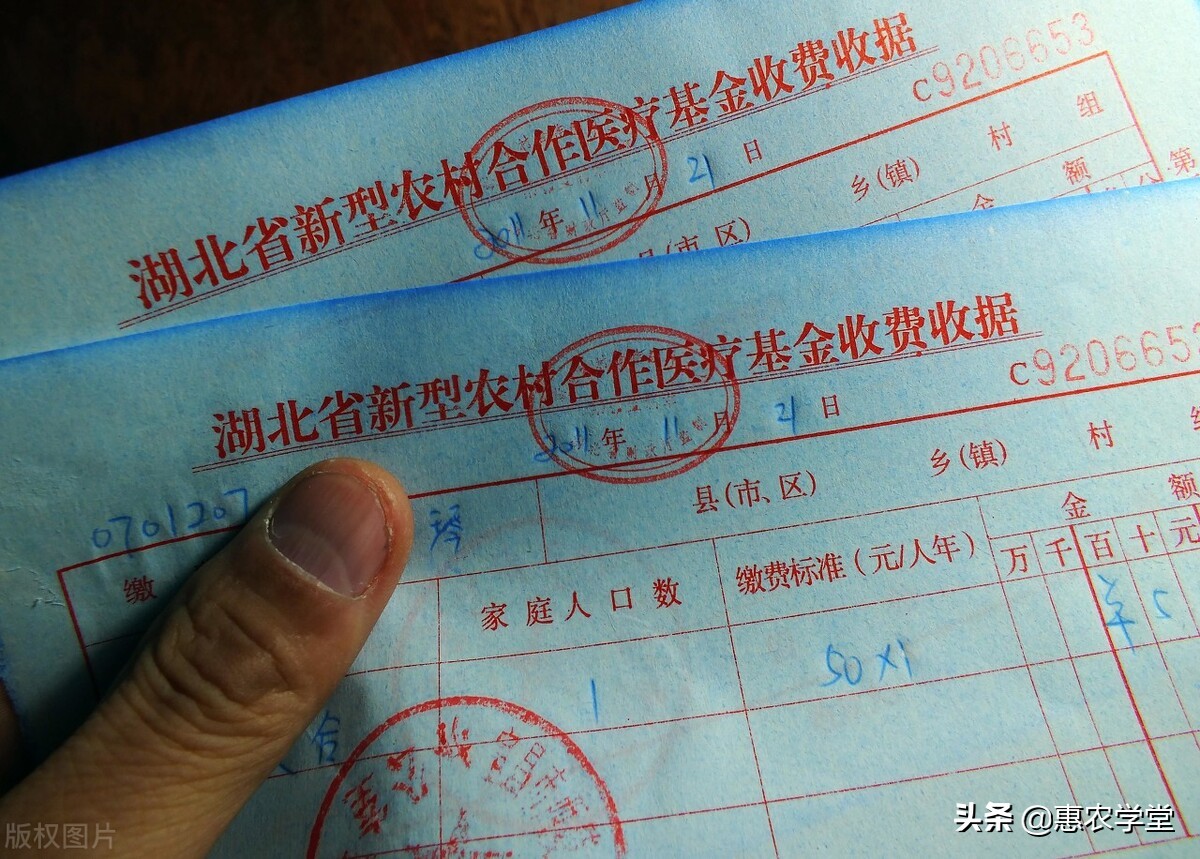 湖北省新型农村合作医疗基金收费收据
C9206653
2011年11月21日
县(市、区) 乡(镇) 村 组
金额
第
湖北省新型农村合作医疗基金收费收据
C920665
2011年11月21日
0701207
琴
县(市、区) 乡(镇) 村
缴
家庭人口数
缴费标准(元/人年)
金额
万千百十元
1
50×1
羊 5
合
版权图片
头条 @惠农学堂